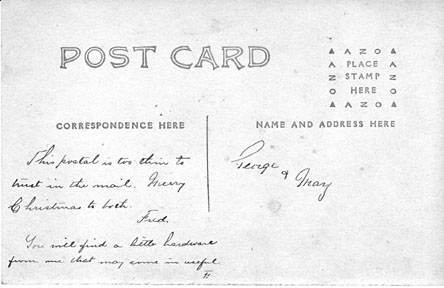 POST CARD
▲ A Z O ▲
A PLACE A
Z STAMP Z
O HERE O
▲ A Z O ▲
CORRESPONDENCE HERE
NAME AND ADDRESS HERE
This postal is too thin to
trust in the mail. Merry
Christmas to both.
Fred.
You will find a little hardware
from me that may come in useful
F
George
& May